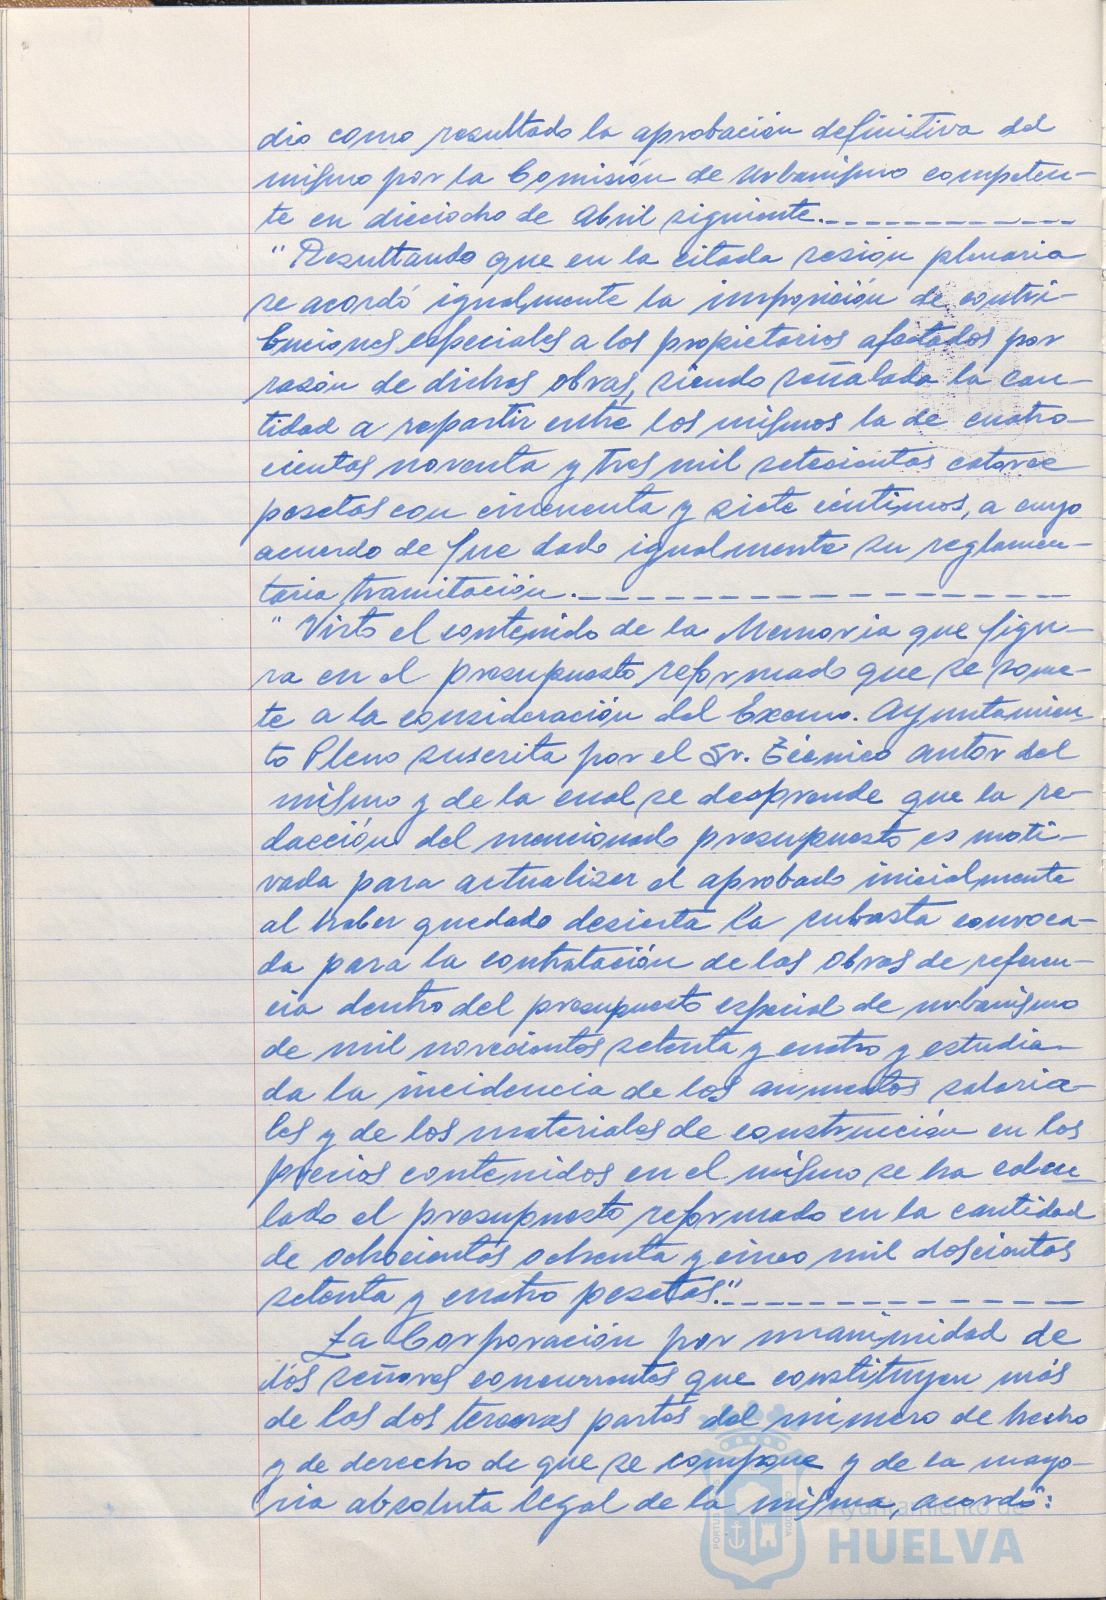 dio como resultado la aprobación definitiva del
mismo por la Comisión de Urbanismo competen-
te en dieciocho de Abril siguiente.
" Resultando que en la citada sesión plenaria
se acordó igualmente la imposición de contri-
buciones especiales a los propietarios afectados por
razón de dichas obras, siendo señalada la can-
tidad a repartir entre los mismos la de cuatro-
cientas noventa y tres mil setecientas catorce
pesetas con cincuenta y siete céntimos, a cuyo
acuerdo de fue dado igualmente su reglamen-
taria tramitación.
" Visto el contenido de la Memoria que figu-
ra en el presupuesto reformado que se some-
te a la consideración del Excmo. Ayuntamien-
to Pleno suscrita por el Sr. Técnico autor del
mismo y de la cual se desprende que la re-
dacción del mencionado presupuesto es moti-
vada para actualizar el aprobado inicialmente
al haber quedado desierta la subasta convoca-
da para la contratación de las obras de referen-
cia dentro del presupuesto especial de urbanismo
de mil novecientos setenta y cuatro y estudia-
da la incidencia de los aumentos salaria-
les y de los materiales de construcción en los
precios contenidos en el mismo se ha calcu-
lado el presupuesto reformado en la cantidad
de ochocientas ochenta y cinco mil doscientas
setenta y cuatro pesetas."
La Corporación por unanimidad de
los señores concurrentes que constituyen más
de las dos terceras partes del número de hecho
y de derecho de que se compone y de la mayo-
ria absoluta legal de la misma, acordó:
Ayuntamiento de
HUELVA